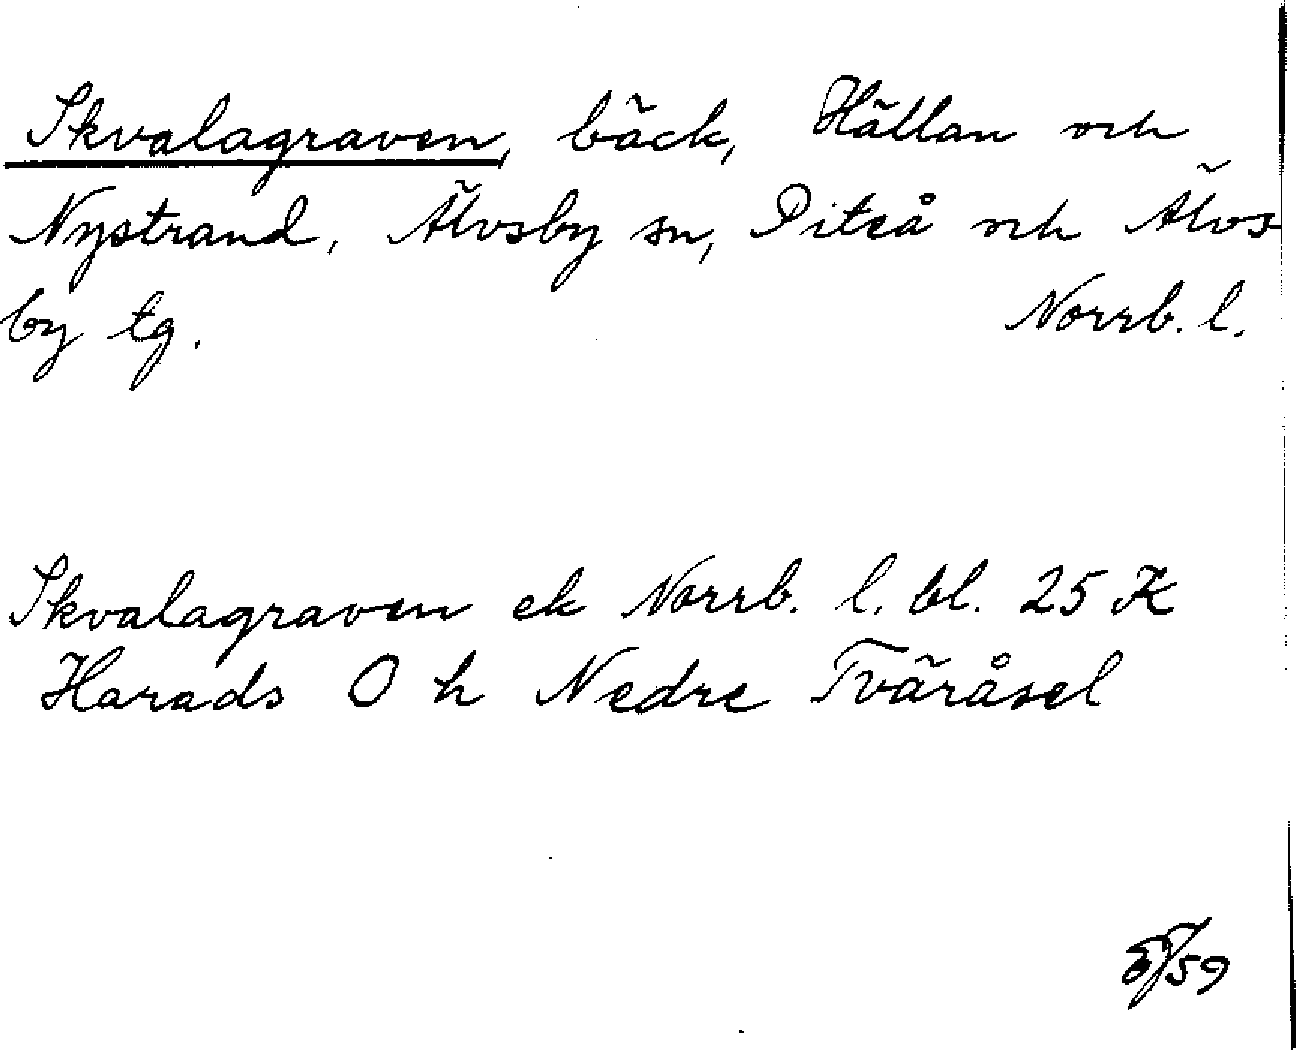 Skvalagraven, bäck, Hällan och
Nystrand, Älvsby sn, Piteå och Älvs-
by tg. Norrb. l.
Skvalagraven ek Norrb. l. bl. 25 K
Harads O h Nedre Tväråsel
/59